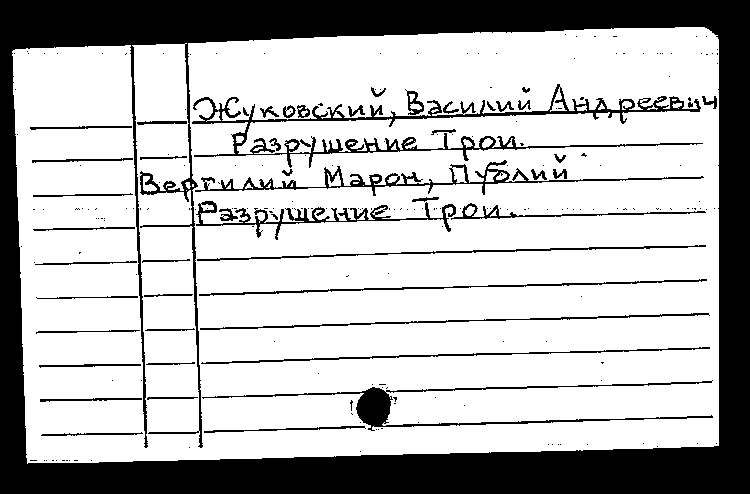 Жуковский, Василий Андреевич
Разрушение Трои.
Вергилий Марон, Публий
Разрушение Трои.